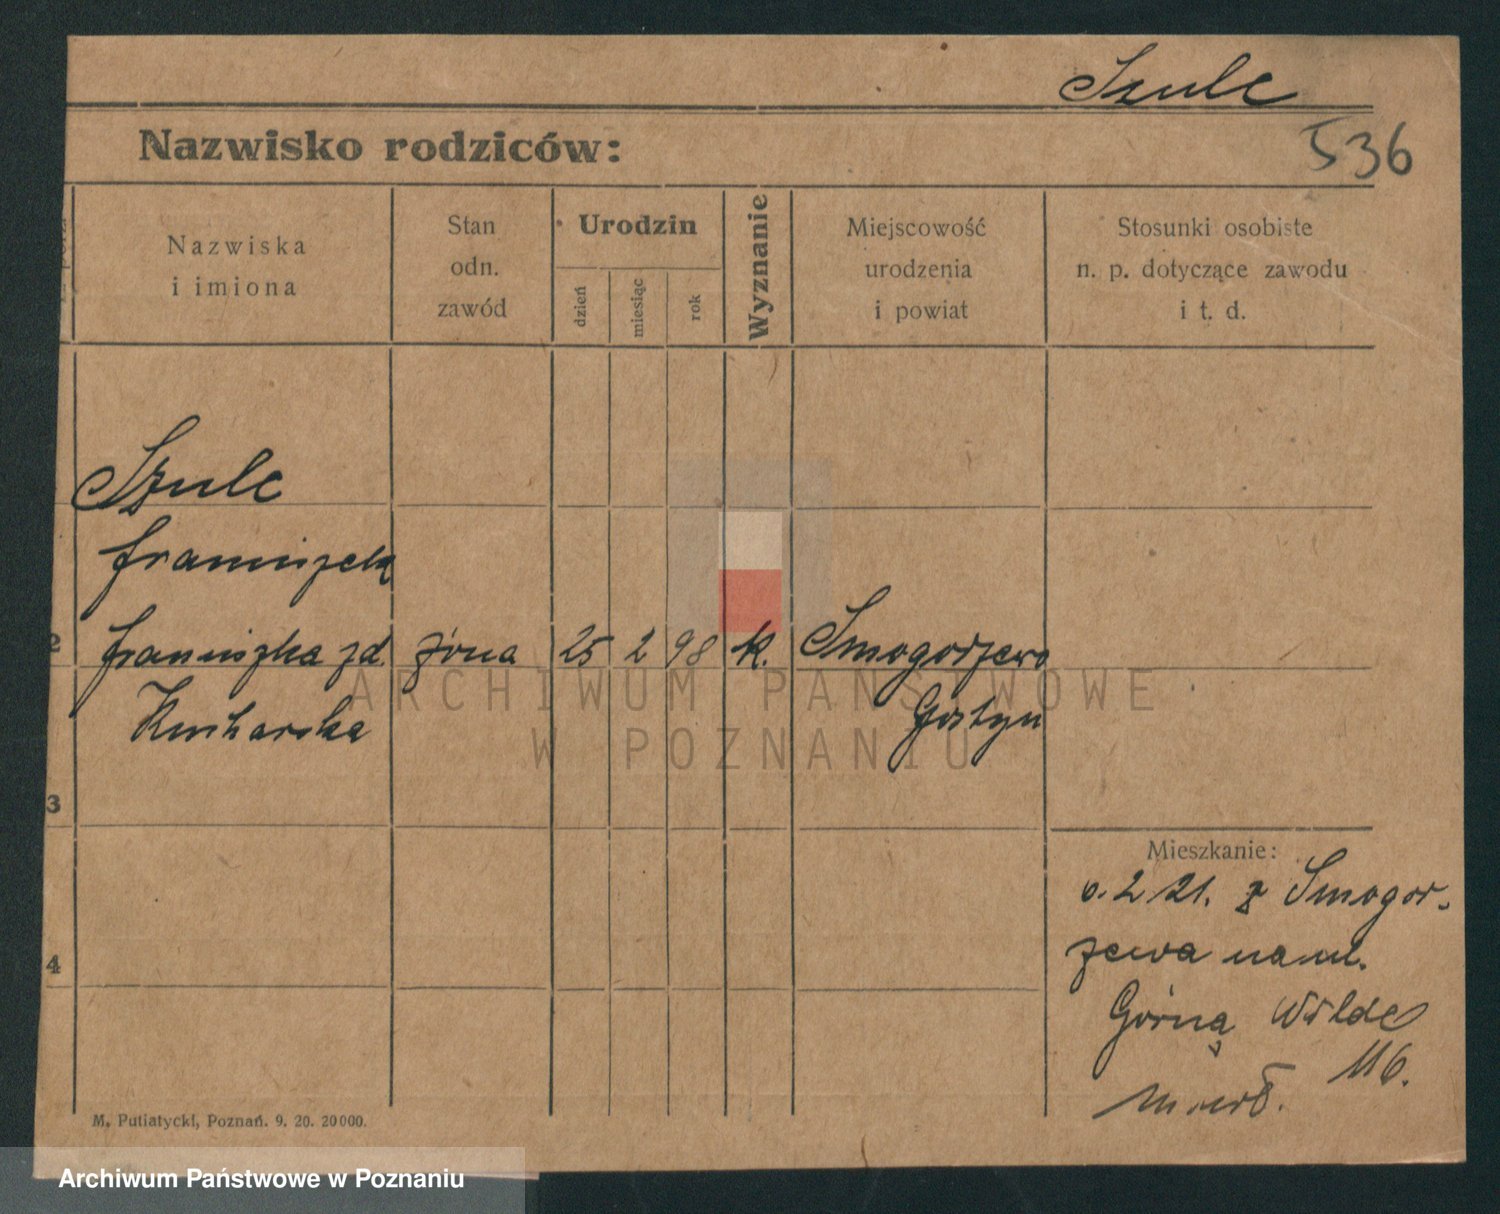 Szulc
Nazwisko rodziców:
536
Nazwiska
i imiona
Stan
odn.
zawód
Urodzin
dzień
miesiąc
rok
Wyznanie
Miejscowość
urodzenia
i powiat
Stosunki osobiste
n. p. dotyczące zawodu
i t. d.
Szulc
Franciszek
2 Franciszka zd. żona 25 2 98 k. Smogorzewo
Kucharska Gostyń
3
4
Mieszkanie:
6. 2 21. z Smogor-
zewa na ul.
Górną Wildę
116.
M. Putiatycki, Poznań. 9. 20. 20000.
ARCHIWUM PAŃSTWOWE
W POZNANIU
Archiwum Państwowe w Poznaniu